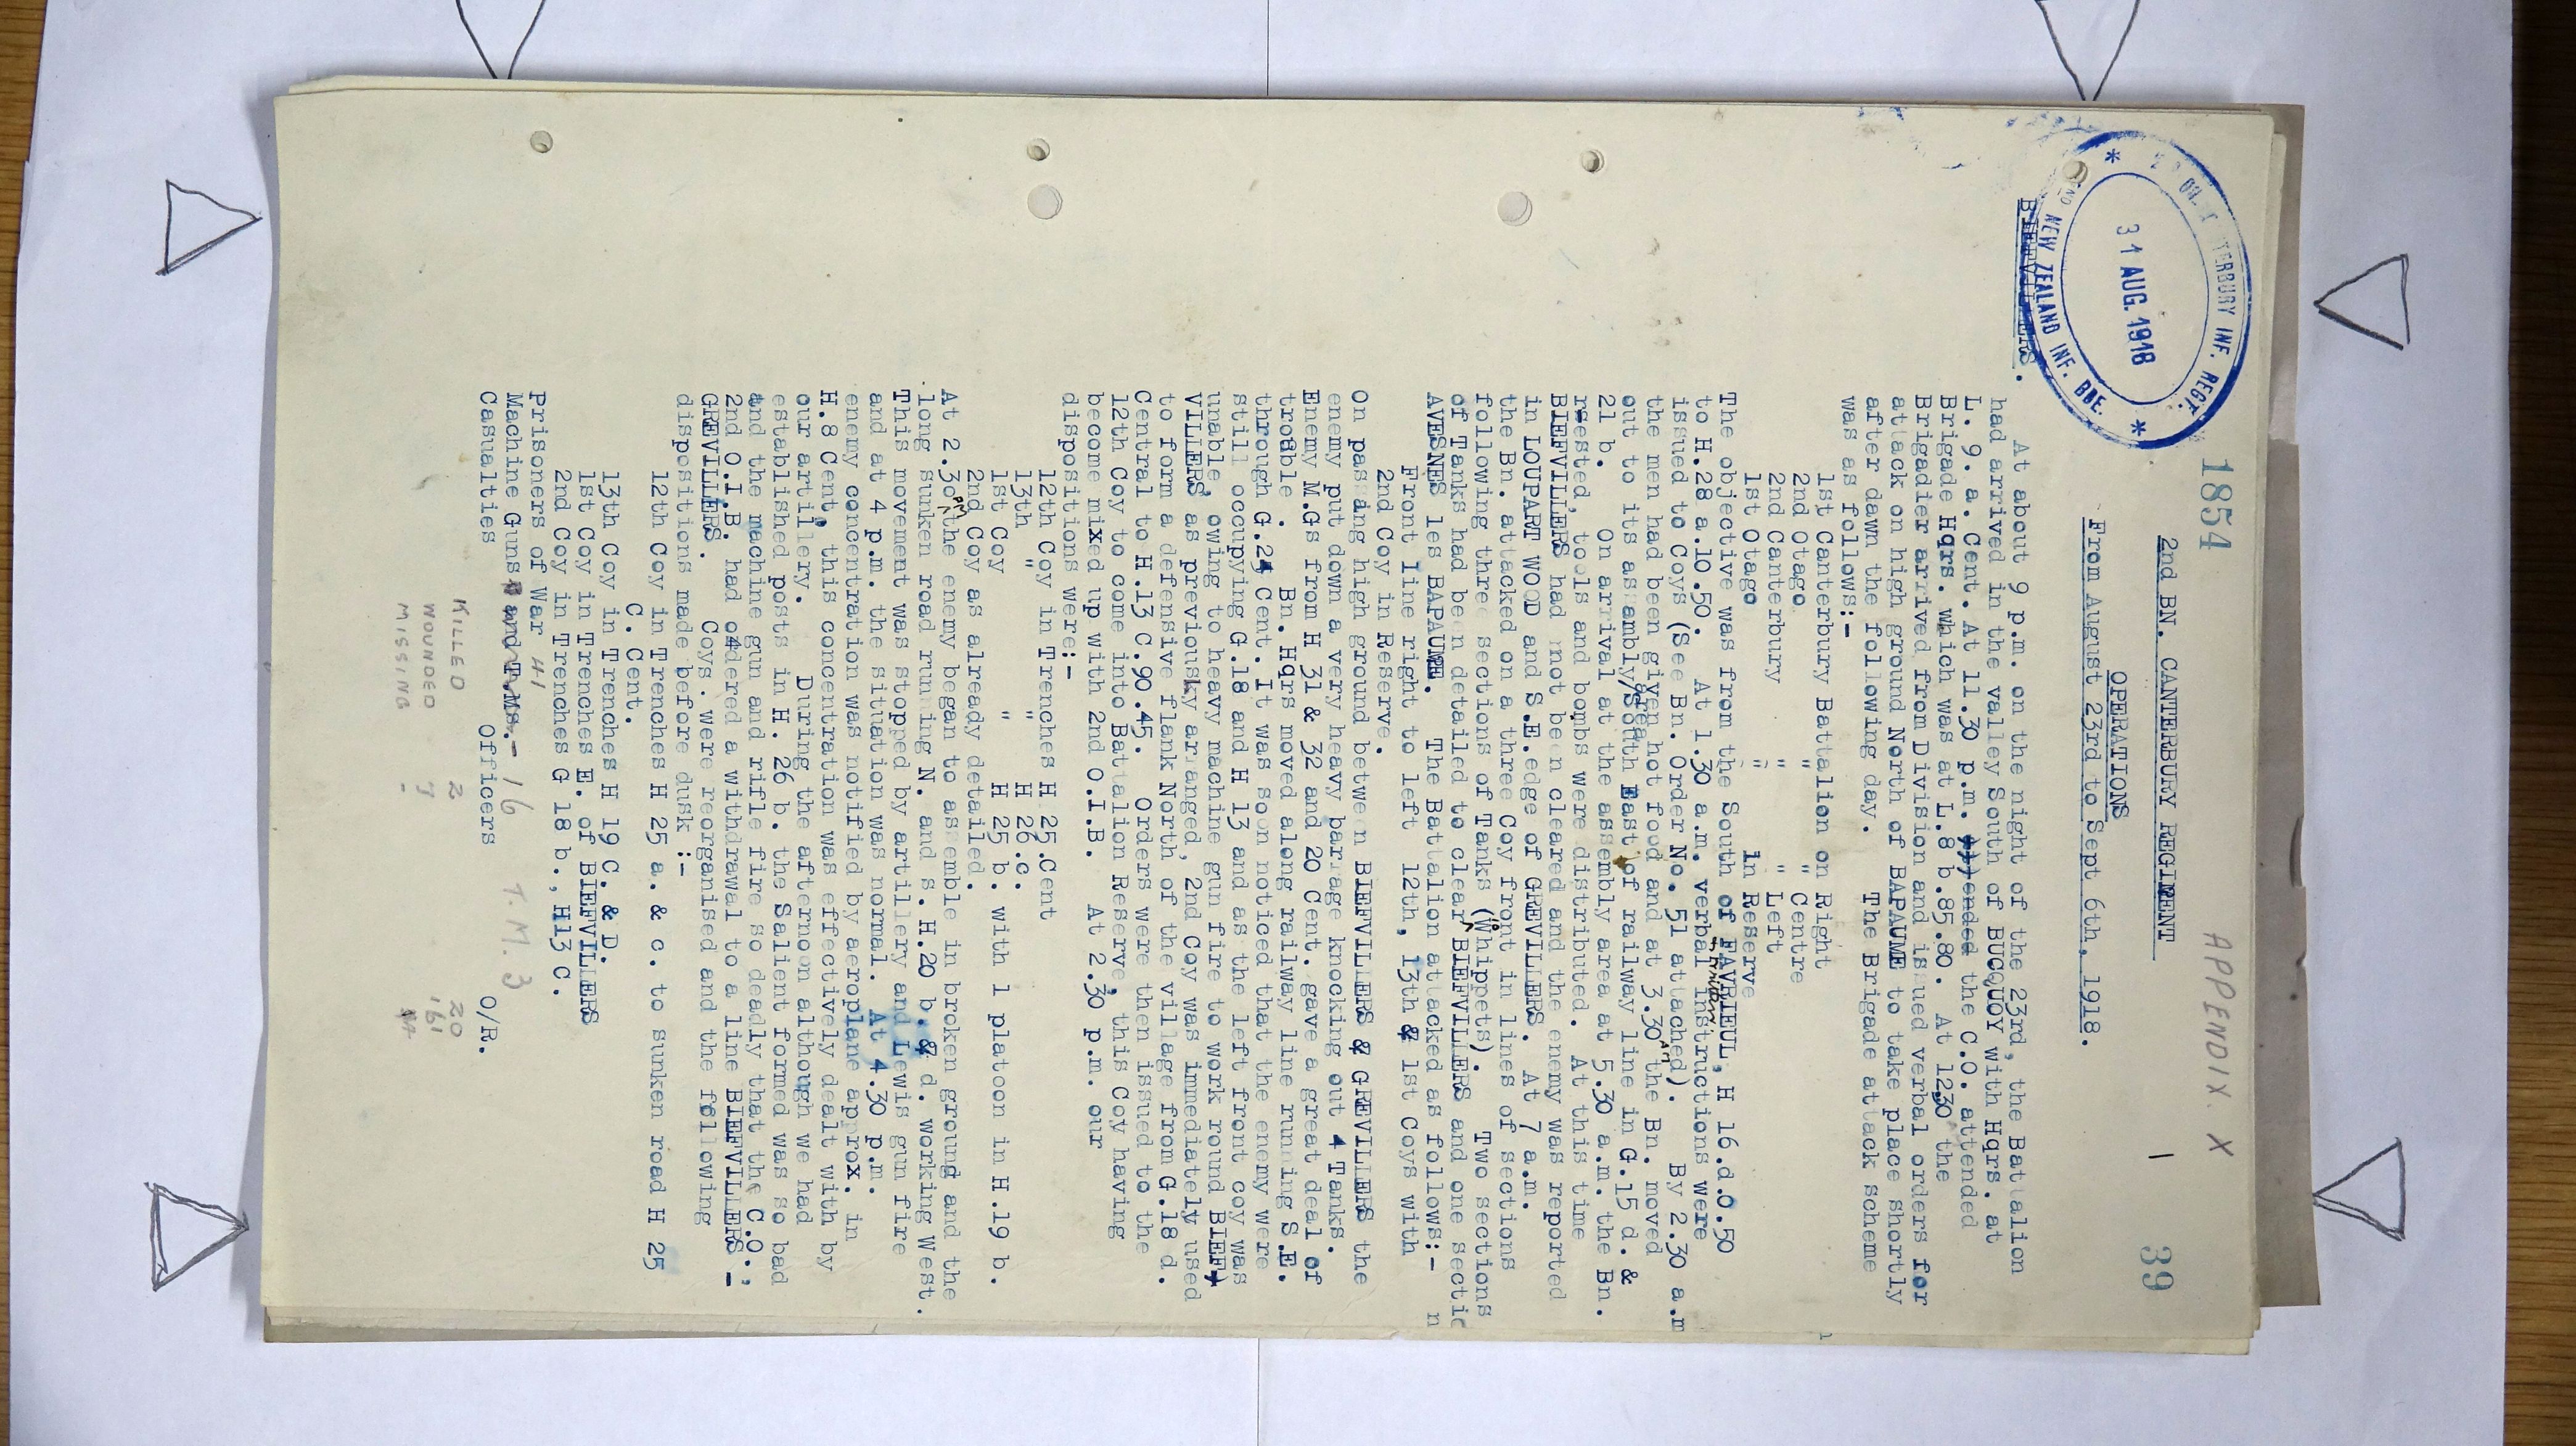 1854
APPENDIX. X
2nd BN. CANTERBURY REGIMENT
1
39
OPERATIONS
From August 23rd to Sept 6th, 1918.
TERBURY INF. REGT.
31 AUG. 1918
NEW ZEALAND INF. BDE.
BIEFVILLERS.
At about 9 p.m. on the night of the 23rd, the Battalion
had arrived in the valley South of BUCQUOY with Hqrs. at
L. 9. a. Cent. At 11.30 p.m. ended the C.O. attended
Brigade Hqrs. which was at L.8 b.85.80. At 1230 the
Brigadier arrived from Division and issued verbal orders for
attack on high ground North of BAPAUME to take place shortly
after dawn the following day. The Brigade attack scheme
was as follows:-
1st Canterbury Battalion on Right
2nd Otago " " Centre
2nd Canterbury " " Left
1st Otago " in Reserve
The objective was from the South of FAVRIEUL, H 16.d.0.50
to H.28 a.10.50. At 1.30 a.m. verbal instructions were
issued to Coys (See Bn. Order No. 51 attached). By 2.30 a.m
the men had been given hot food and at 3.30 AM the Bn. moved
out to its assambly/South East of railway line in G.15 d. &
area
21 b. On arrival at the assembly area at 5.30 a.m. the Bn.
rested, tools and bombs were distributed. At this time
BIEFVILLERS had not been cleared and the enemy was reported
in LOUPART WOOD and S.E.edge of GREVILLERS. At 7 a.m.
the Bn. attacked on a three Coy front in lines of sections
following three sections of Tanks (Whippets). Two sections
of Tanks had been detailed to clear BIEFVILLERS and one section
AVESNES les BAPAUME. The Battalion attacked as follows:-
Front line right to left 12th, 13th & 1st Coys with
2nd Coy in Reserve.
On passing high ground between BIEFVILLERS & GREVILLERS the
enemy put down a very heavy barrage knocking out 4 Tanks.
Enemy M.Gs from H 31 & 32 and 20 Cent. gave a great deal of
trouble. Bn. Hqrs moved along railway line running S.E.
through G.24 Cent. I was soon noticed that the enemy were
still occupying G.18 and H 13 and as the left front coy was
unable, owing to heavy machine gun fire to work round BIEF)
VILLERS as previousky arranged, 2nd Coy was immediately used
to form a defensive flank North of the village from G.18 d.
Central to H.13 C.90.45. Orders were then issued to the
12th Coy to come into Battalion Reserve, this Coy having
become mixed up with 2nd O.I.B. At 2.30 p.m. our
dispositions were:-
12th Coy in Trenches H 25.Cent
13th " " H 26.c.
1st Coy " H 25 b. with 1 platoon in H.19 b.
2nd Coy as already detailed.
At 2.30 PM the enemy began to assemble in broken ground and the
long sunken road running N. and s. H.20 b. & d. working West.
This movement was stopped by artillery and Lewis gun fire
and at 4 p.m. the situation was normal. At 4.30 p.m.
enemy concentration was notified by aeroplane approx. in
H.8 Cent, this concentration was effectively dealt with by
our artillery. During the afternoon although we had
established posts in H. 26 b. the Salient formed was so bad
and the machine gun and rifle fire so deadly that the C.O.,
2nd O.I.B. had ordered a withdrawal to a line BIEFVILLERS -
GREVILLERS. Coys. were reorganised and the following
dispositions made before dusk :-
12th Coy in Trenches H 25 a. & c. to sunken road H 25
C. Cent.
13th Coy in Trenches H 19 C. & D.
1st Coy in Trenches E. of BIEFVILLERS
2nd Coy in Trenches G 18 b., H13 C.
Prisoners of War 41
Machine Guns and T.Ms.- 16 T.M. 3
Casualties Officers O/R.
KILLED 2 20
WOUNDED 7 161
MISSING -